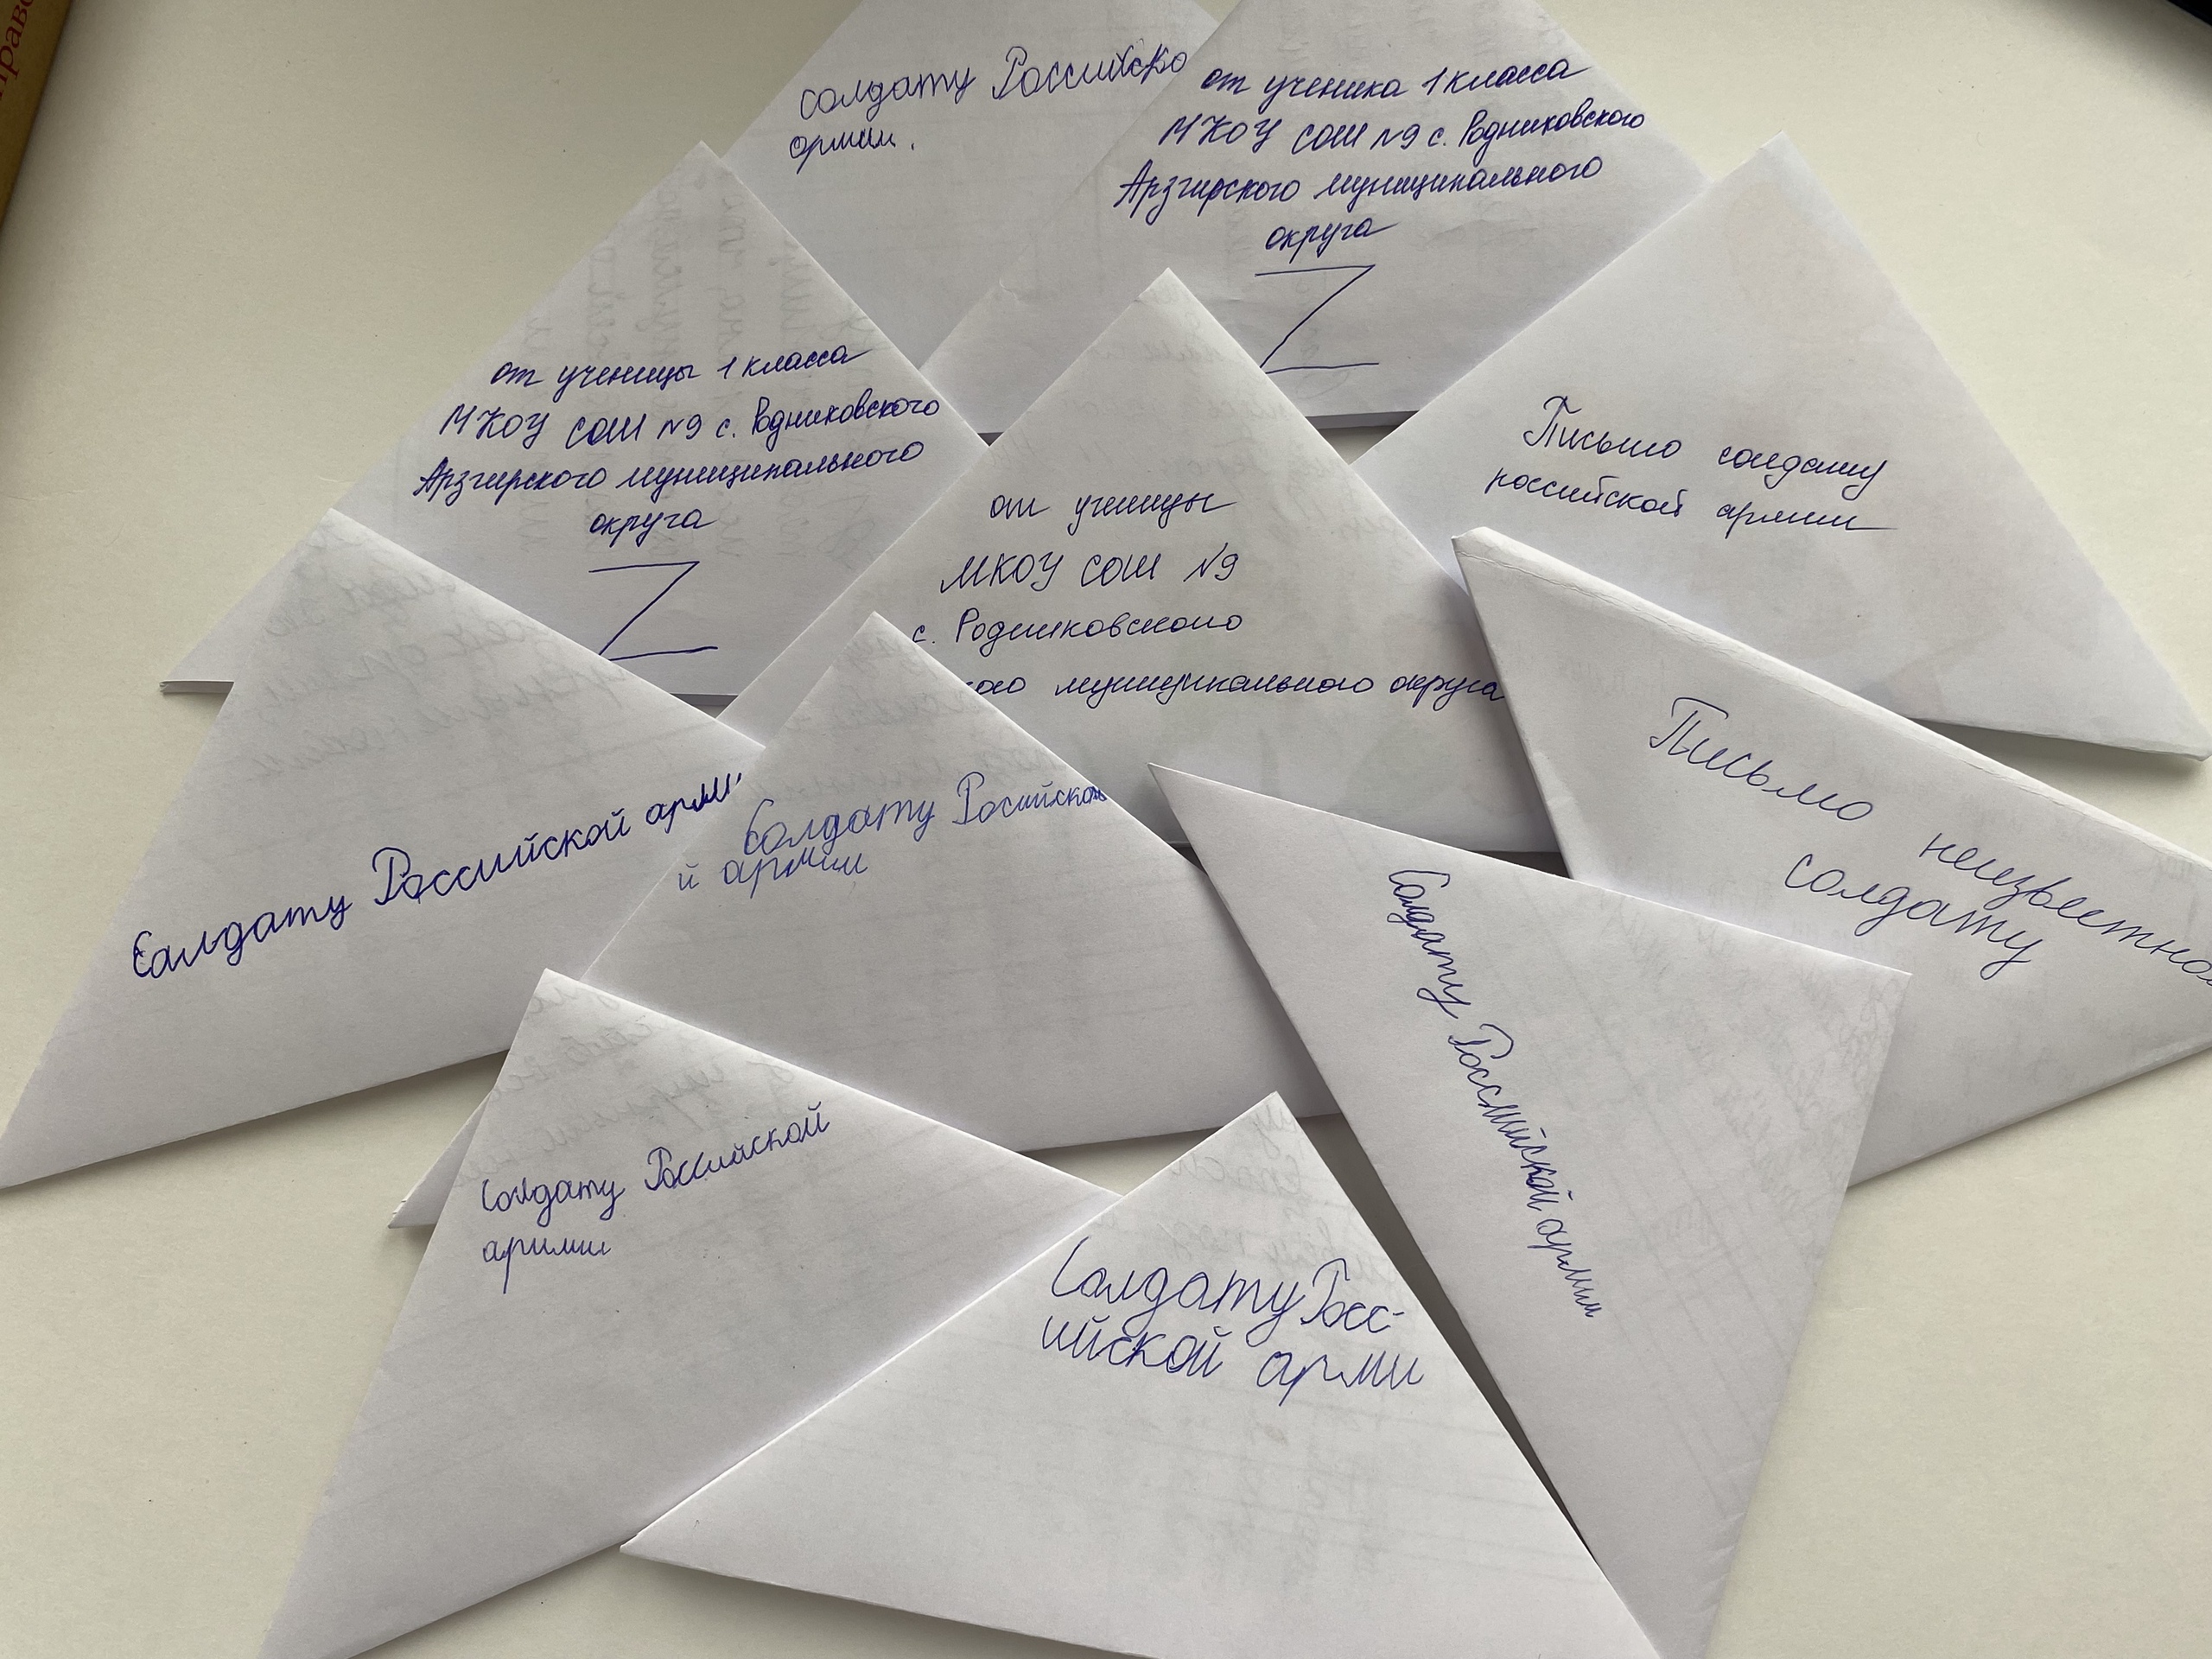 солдату Российско
армии.
от ученика 1 класса
МКОУ СОШ №9 с. Родниковского
Арзгирского муниципального
округа
Z
от ученицы 1 класса
МКОУ СОШ №9 с. Родниковского
Арзгирского муниципального
округа
Z
от ученицы
МКОУ СОШ №9
с. Родниковского
кого муниципального округа
Письмо солдату
российской армии
Письмо неизвестно
солдату
Салдату Российской арми
Солдату Росийской
й армии
Солдату Российской армии
Солдату Российской
армии
Солдату Росс-
ийской арми